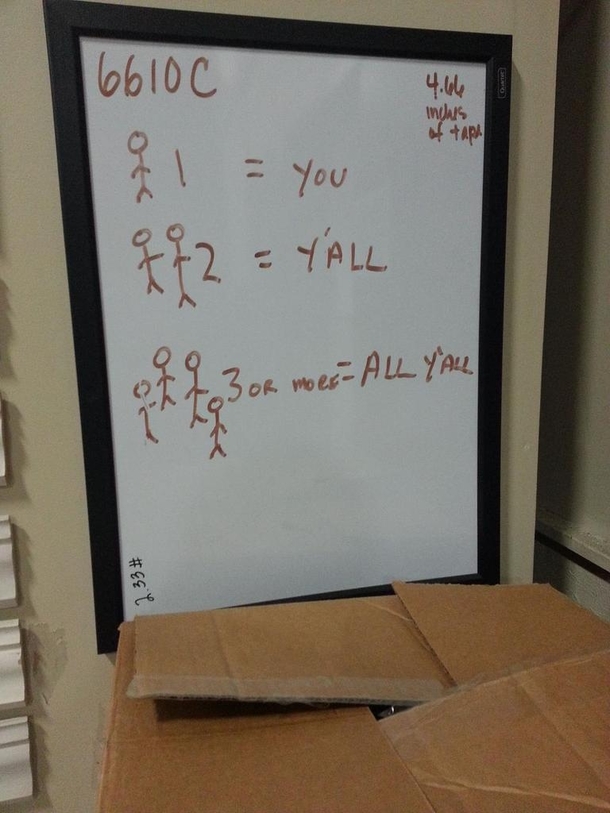 6610C
4.66
inches
of tape
1 = YOU
2 = Y'ALL
3 OR MORE = ALL Y'ALL
2.33#
Quartet